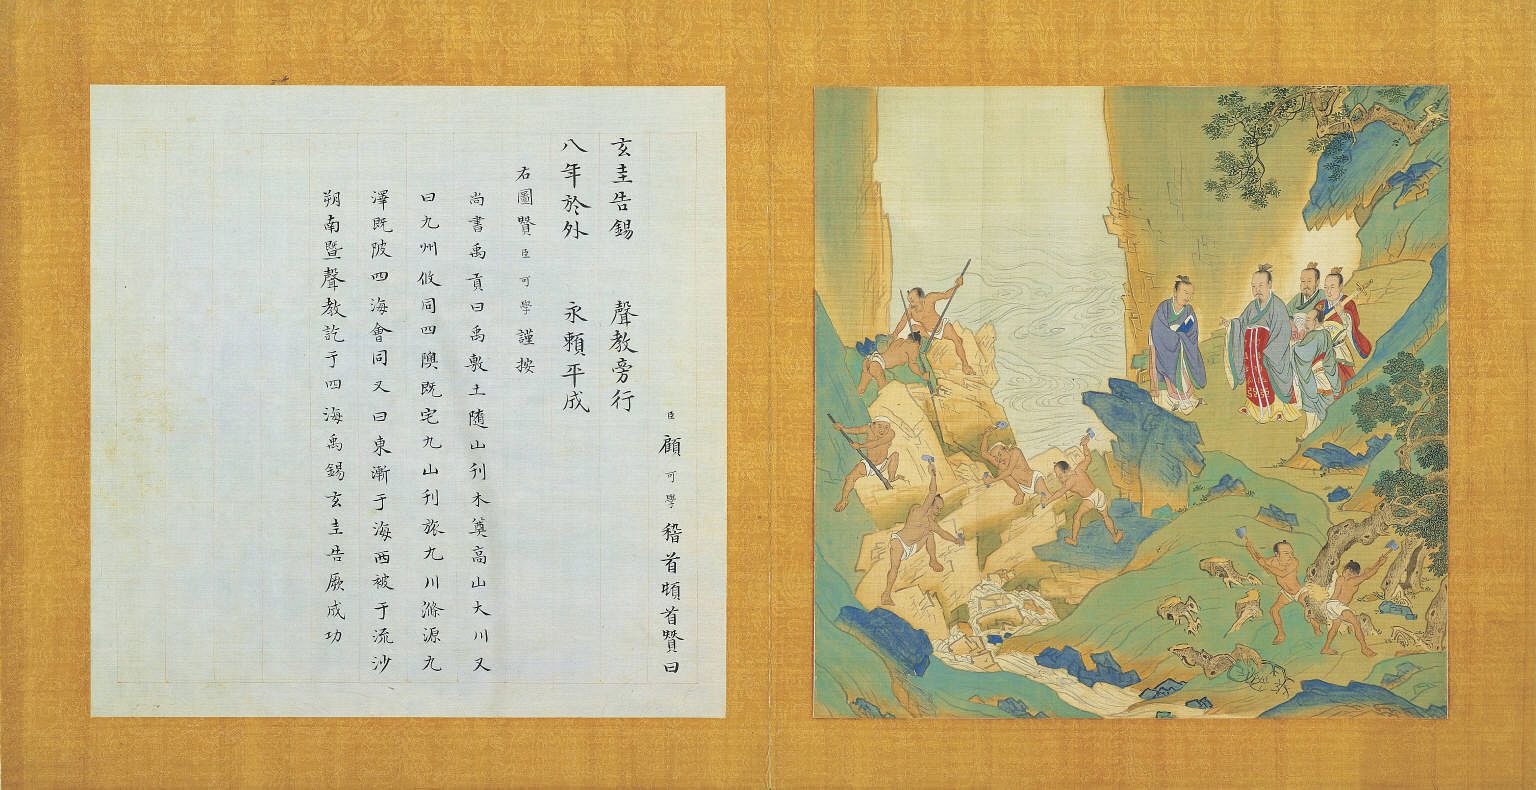 臣顧可學稽首頓首賛曰
玄圭告錫　聲教旁行
八年於外　永賴平成
右圖賛臣可學謹按
尚書禹貢曰禹敷土隨山刊木奠高山大川又
曰九州攸同四隩既宅九山刊旅九川滌源九
澤既陂四海會同又曰東漸于海西被于流沙
朔南暨聲教訖于四海禹錫玄圭告厥成功